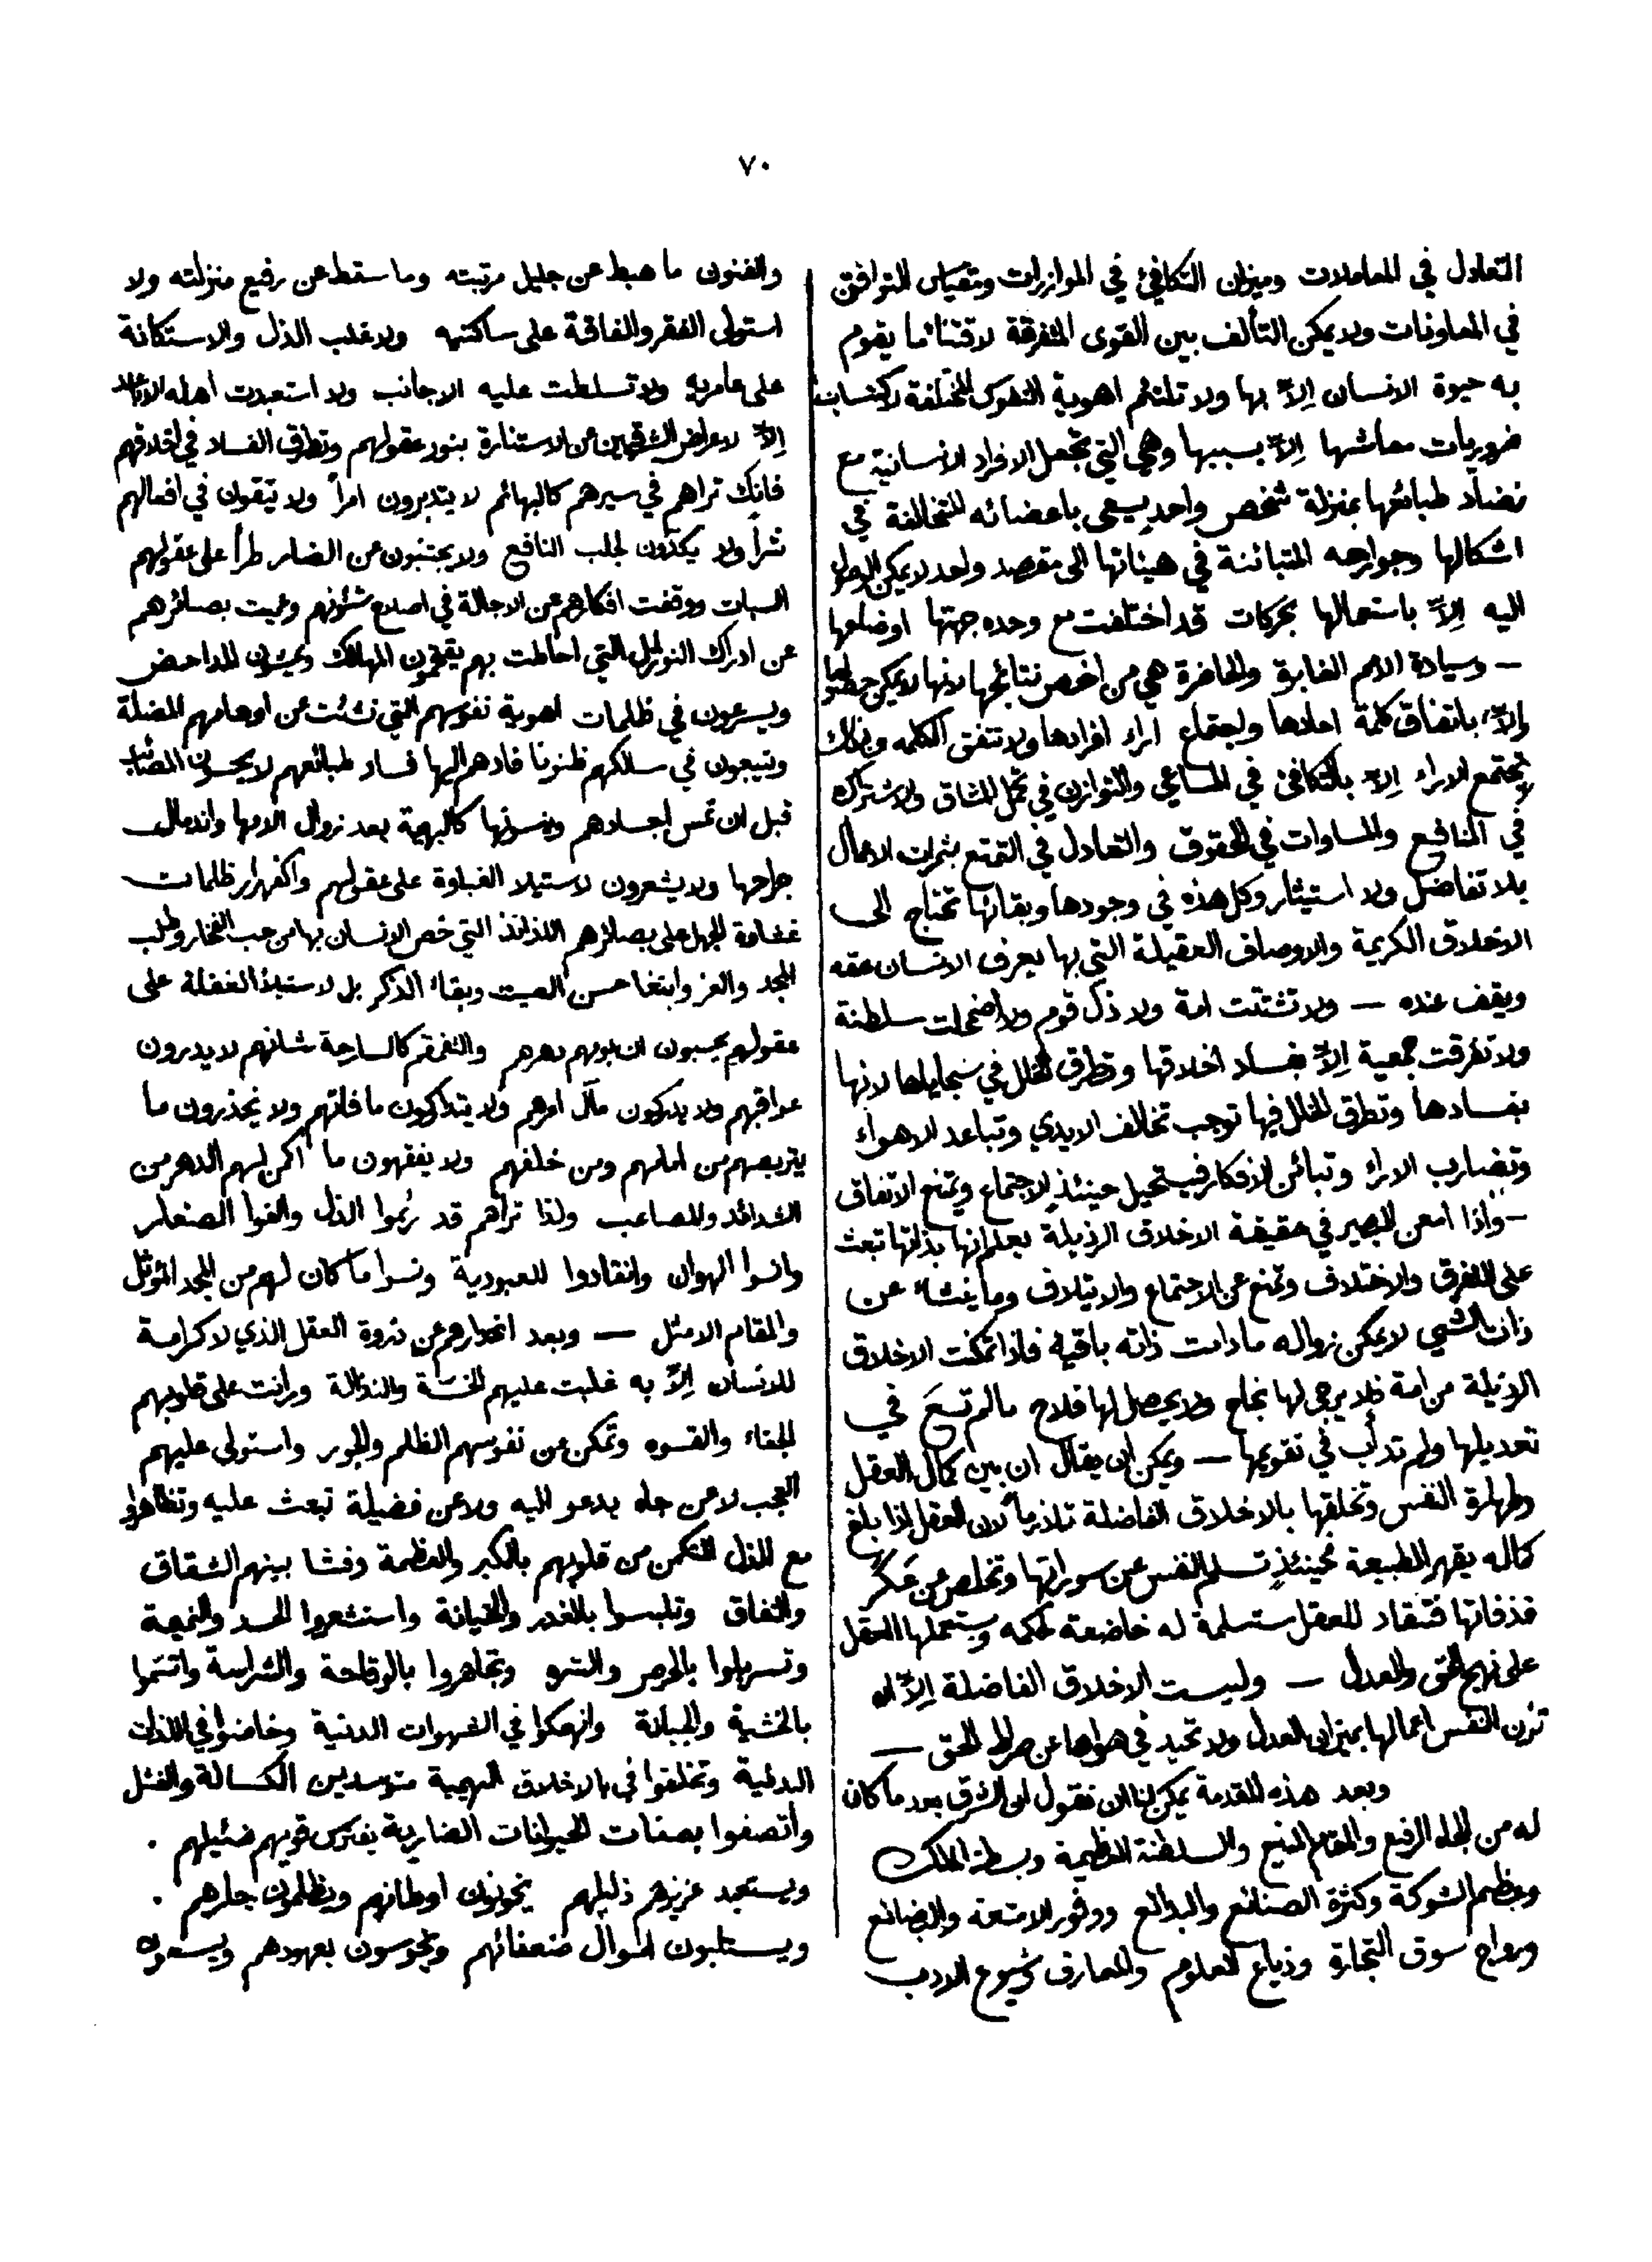 ٧٠
التعادل في المعاملات وميزان التكافئ في الموازرات ومقياس التوافق
في المعاونات ولا يمكن التألف بين القوى المتفرقة لاقتنائما يقوم
به حيوة الانسان إلاّ بها ولا تلتئم اهوية النفوس المختلفة لاكتساب
ضروريات معاشها إلاّ بسببها وهي التي تجعل الافراد الانسانية مع
تضادّ طبائعها بمنزلة شخص واحدٍ يسعى باعضائه المتخالفة في
اشكالها وجوارحه المتبائنة في هيئاتها الى مقصد واحد لا يمكن الوصول
اليه إلاّ باستعمالها بحركات قد اختلفت مع وحده جهتها اوضاعها
— وسيادة الامم الغابرة والحاضرة هي من اخص نتائجها لانها لا يمكن حصولها
إلاّ باتفاق كلمة احادها واجتماع اراء افرادها ولا تتفق الكلمه وكذلك
لا تجتمع الاراء إلاّ بالتكافئ في المساعي والتوازن في تحمل المشاق والاشتراك
في المنافع والمساوات في الحقوق والتعادل في التمتع بثمرات الاعمال
بلا تفاضل ولا استيثار وكل هذه في وجودها وبقائها تحتاج الى
الاخلاق الكريمة والاوصاف العقيلة التي بها يعرف الانسان حقه
ويقف عنده — ولا تشتّتت امة ولا ذلّ قوم ولا اضمحلت سلطنة
ولا تفرقت جمعية إلاّ بفساد اخلاقها وتطرق الخلل في سجاياها لانها
بفسادها وتطرق الخلل فيها توجب تخالف الايدي وتباعد الاهواء
وتضارب الاراء وتبائن الافكار فيستحيل حينئذٍ الاجتماع ويمتنع الاتفاق
— واذا امعن البصير في حقيقة الاخلاق الرذيلة يعلم انها بذاتها تبعث
على التفرق والاختلاف وتمنع عن الاجتماع والايتلاف وما ينشاء عن
ذات الشيي لا يمكن زواله ما دامت ذاته باقية فاذا تمكنت الاخلاق
الرذيلة من امة فلا يرجى لها نجاح ولا يحصل لها فلاح ما لم تسعَ في
تعديلها ولم تدأب في تقويمها — ويمكن ان يقال ان بين كمال العقل
وطهارة النفس وتخلقها بالاخلاق الفاضلة تلازماً لان العقل اذا بلغ
كماله يقهر الطبيعة فحينئذٍ تسلم النفس من سوراتها وتخلص من عَكَر
قذفاتها فتنقاد للعقل مستسلمة له خاضعة لحكمه ويستعملها العقل
على نهج الحق والعدل — وليست الاخلاق الفاضلة إلاّ ان
تزن النفس اعمالها بميزان العدل ولا تحيد في هواها عن صراط الحق —
وبعد هذه المقدمة يمكن لنا ان نقول ان الشرق بعد ما كان
له من الجاه الرفيع والمقام المنيع والسلطنة العظيمة وبسطة الملك
وعظم الشوكة وكثرة الصنائع والبدائع ووفور الامتعة والبضائع
ورواج سوق التجارة وذياع العلوم والمعارف وشيوع الادب
والفنون ما هبط عن جليل مرتبته وما سقط عن رفيع منزلته ولا
استولى الفقر والفاقة على ساكنيه ولا غلب الذل والاستكانة
على عامريه ولا تسلطت عليه الاجانب ولا استعبدت اهله الاباعد
إلاّ لاعراض الشرقيين عن الاستنارة بنور عقولهم وتطرق الفساد في اخلاقهم
فانك تراهم في سيرهم كالبهائم لا يتدبرون امراً ولا يتقون في افعالهم
شراً ولا يكدّون لجلب النافع ولا يجتنبون عن الضار طرأ على عقولهم
السبات ووقفت افكارهم عن الاجالة في اصلاح شئونهم وعميت بصائرهم
عن ادراك النوازل التي احاطت بهم يقتحمون المهالك ويمشون المداحض
ويسرعون في ظلمات اهوية نفوسهم التي نشئت عن اوهامهم المضلة
ويتبعون في مسالكهم ظنونا قادهم اليها فساد طبائعهم لا يحسون المصائب
قبل ان تمس اجسادهم وينسونها كالبهيمة بعد زوال الامها واندمال
جراحها ولا يشعرون لاستيلا الغباوة على عقولهم واكفهرار ظلمات
غشاوة الجهل على بصائرهم اللذائذ التي خص الانسان بها من حب الفخار وطلب
المجد والعز وابتغا حسن الصيت وبقاء الذكر بل لاستيلاء الغفلة على
عقولهم يحسبون ان يومهم دهرهم والتقمقم كالسارحة شانهم لا يدرون
عواقبهم ولا يدركون مآل امرهم ولا يتداركون ما فاتهم ولا يحذرون ما
يتربصهم من امامهم ومن خلفهم ولا يفقهون ما اكمن لهم الدهر من
الشدائد والمصاعب ولذا تراهم قد رُئموا الذل والفوا الصغار
وانسوا الهوان وانقادوا للعبودية ونسوا ما كان لهم من المجد المؤثل
والمقام الامثل — وبعد انحدارهم عن ذروة العقل الذي لا كرامة
للانسان إلاّ به غلبت عليهم الخسّة والنذالة ورانت على قلوبهم
الجفاء والقسوه وتمكن من نفوسهم الظلم والجور واستولى عليهم
العجب لا عن جاه يدعو اليه ولا عن فضيلة تبعث عليه وتظاهروا
مع الذل المتمكن من قلوبهم بالكبر والعظمة وفشا بينهم الشقاق
والنفاق وتلبسوا بالغدر والخيانة واستشعروا الحسد والنميمة
وتسربلوا بالحرص والشره وتجاهروا بالوقاحة والشراسة واتسّموا
بالخشية والجبانة وانهمكوا في الشهوات الدنية وخاضوا في اللذات
البدنية وتخلقوا في بالاخلاق البهيمية متوسدين الكسالة والفشل
واتصفوا بصفات الحيوانات الضارية يفترس قويهم ضئيلهم .
ويستعبد عزيزهم ذليلهم يخونون اوطانهم ويظلمون جارهم .
ويستلبون اموال ضعفائهم ويخوسون بعهودهم ويسعون